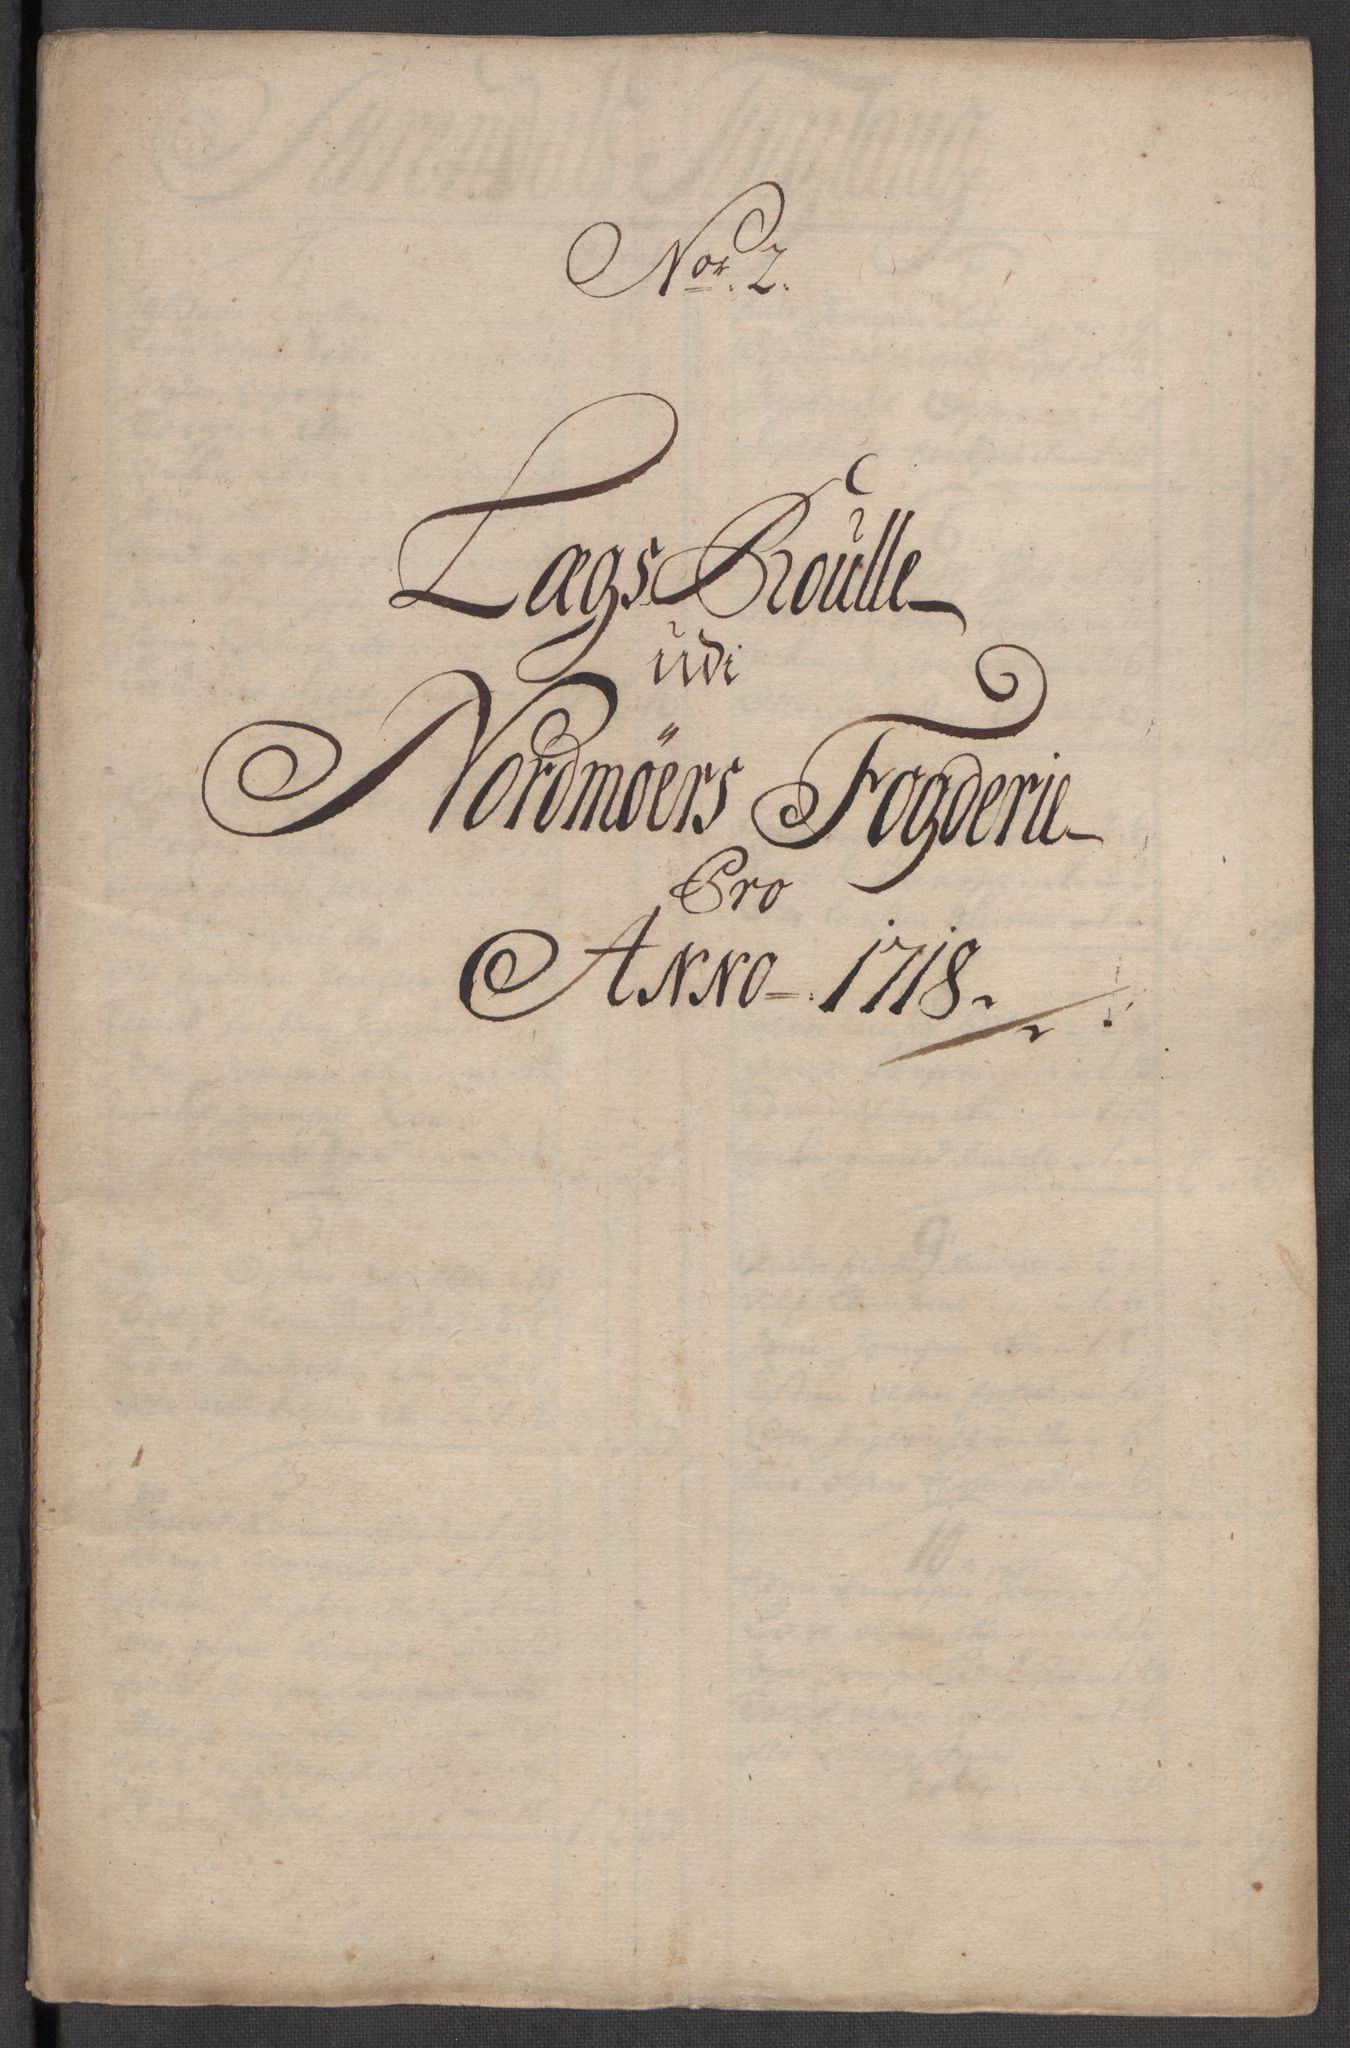 No. 2.
Lægs Roulle
udi
Nordmöers Fogderie
Pro
Anno 1718.